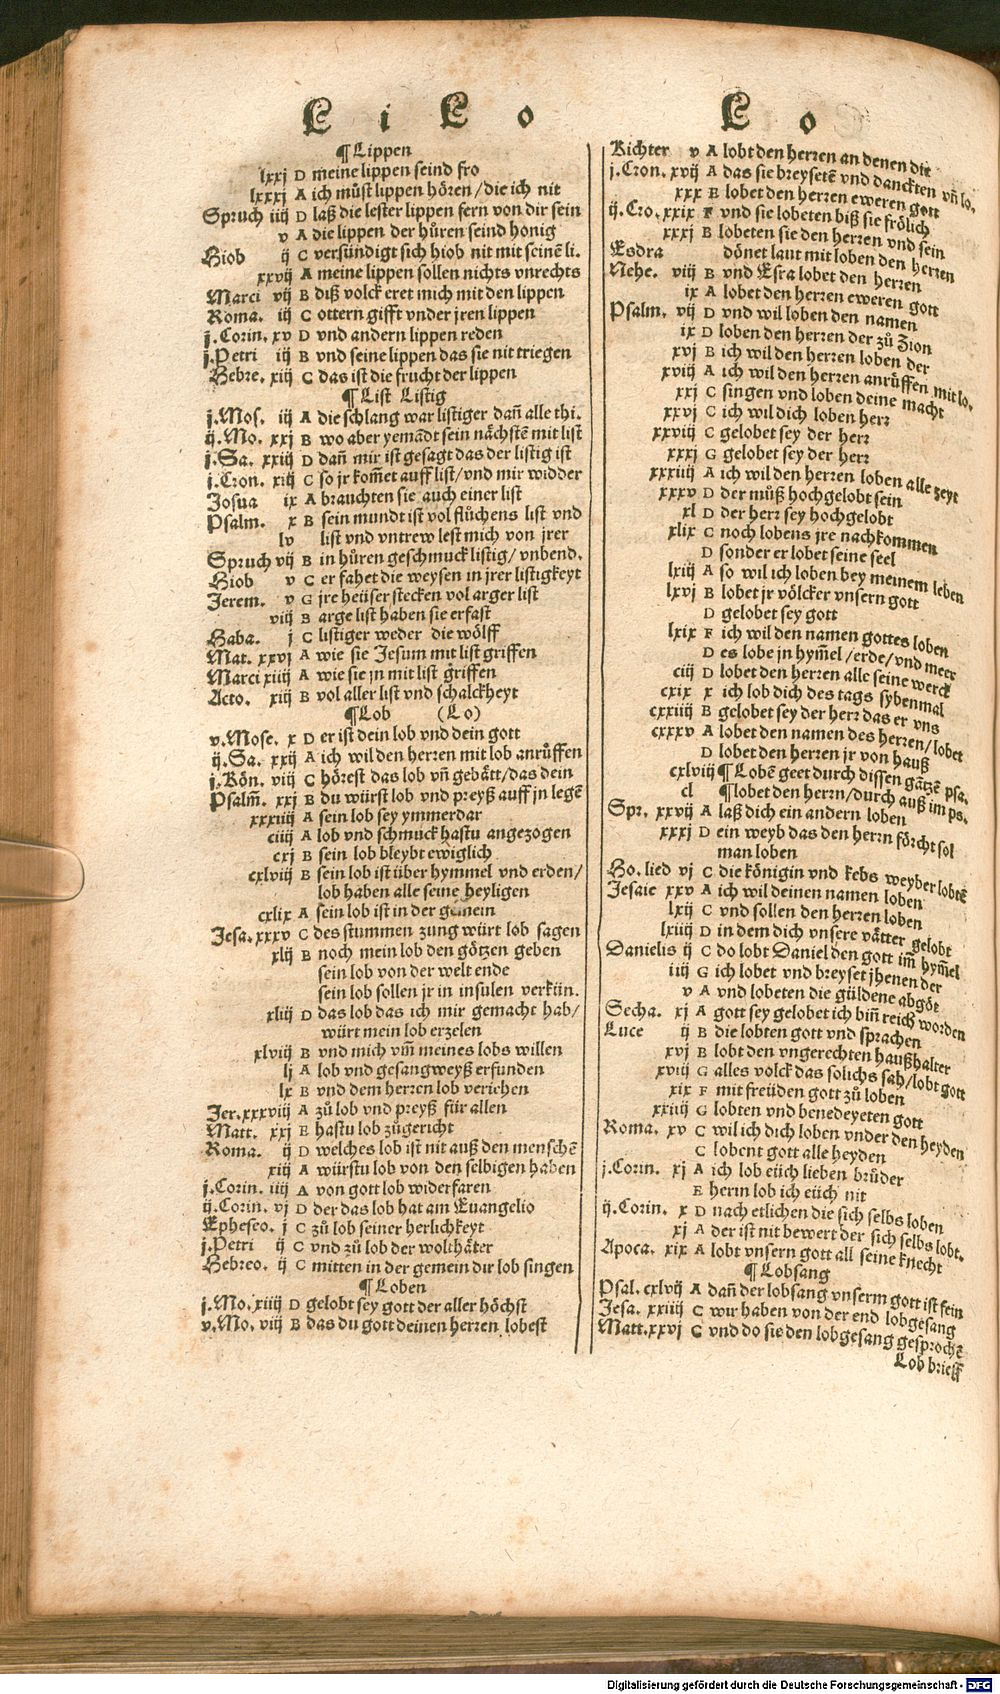 L i L o L o
¶Lippen
lxxj D meine lippen seind fro
lxxxj A ich můst lippen hören/die ich nit
Spruch iiij D laß die lester lippen fern von dir sein
v A die lippen der hůren seind honig
Hiob ij C versündigt sich hiob nit mit seinē li.
xxvij A meine lippen sollen nichts vnrechts
Marci vij B diß volck eret mich mit den lippen
Roma. iij C ottern gifft vnder jren lippen
j.Corin. xv D vnd andern lippen reden
j.Petri iij B vnd seine lippen das sie nit triegen
Hebre. xiij C das ist die frucht der lippen
¶List Listig
j.Mos. iij A die schlang war listiger dañ alle thi.
ij.Mo. xxj B wo aber yemādt sein nächstē mit list
j.Sa. xxiij D dañ mir ist gesagt das der listig ist
j.Cron. xiij C so jr kom̄et auff list/vnd mir widder
Josua ix A brauchten sie auch einer list
Psalm. x B sein mundt ist vol flůchens list vnd
lv list vnd vntrew lest mich von jrer
Spruch vij B in hůren geschmuck listig/vnbend.
Hiob v C er fahet die weysen in jrer listigkeyt
Jerem. v G jre heüser stecken vol arger list
viij B arge list haben sie erfast
Haba. j C listiger weder die wölff
Mat. xxvj A wie sie Jesum mit list griffen
Marci xiiij A wie sie jn mit list griffen
Acto. xiij B vol aller list vnd schalckheyt
¶Lob (Lo)
v.Mose. x D er ist dein lob vnd dein gott
ij.Sa. xxij A ich wil den herren mit lob anrůffen
j.Kön. viij C hörest das lob vñ gebätt/das dein
Psalm̄. xxj B du würst lob vnd preyß auff jn legē
xxxiiij A sein lob sey ymmerdar
ciiij A lob vnd schmuck hastu angezogen
cxj B sein lob bleybt ewiglich
cxlviij B sein lob ist über hymmel vnd erden/
lob haben alle seine heyligen
cxlix A sein lob ist in der gemein
Jesa. xxxv C des stummen zung würt lob sagen
xlij B noch mein lob den götzen geben
sein lob von der welt ende
sein lob sollen jr in insulen verkün.
xliij D das lob das ich mir gemacht hab/
würt mein lob erzelen
xlviij B vnd mich vm̄ meines lobs willen
lj A lob vnd gesangweyß erfunden
lx B vnd dem herren lob veriehen
Jer. xxxviij A zů lob vnd preyß für allen
Matt. xxj E hastu lob zůgericht
Roma. ij D welches lob ist nit auß den menschē
xiij A würstu lob von den selbigen haben
j.Corin. iiij A von gott lob widerfaren
ij.Corin. vj D der das lob hat am Euangelio
Epheseo. j C zů lob seiner herlichkeyt
j.Petri ij C vnd zů lob der wolthäter
Hebreo. ij C mitten in der gemein dir lob singen
¶Loben
j.Mo. xiiij D gelobt sey gott der aller höchst
v.Mo. viij B das du gott deinen herren lobest
Richter v A lobt den herren an denen die
j.Cron. xvij A das sie breysetē vnd danckten vñ lo.
xxx E lobet den herren eweren gott
ij.Cro. xxix F vnd sie lobeten biß sie frölich
xxxj B lobeten sie den herren vnd sein
Esdra dönet laut mit loben den herren
Nehe. viij B vnd Esra lobet den herren
ix A lobet den herren eweren gott
Psalm. vij D vnd wil loben den namen
ix D loben den herren der zů Zion
xvj B ich wil den herren loben der
xviij A ich wil den herren anrůffen mit lo.
xxj C singen vnd loben deine macht
xxvj C ich wil dich loben herr
xxviij C gelobet sey der herr
xxxj G gelobet sey der herr
xxxiiij A ich wil den herren loben alle zeyt
xxxv D der můß hochgelobt sein
xl D der herr sey hochgelobt
xlix C noch lobens jre nachkommen
D sonder er lobet seine seel
lxiij A so wil ich loben bey meinem leben
lxvj B lobet jr völcker vnsern gott
D gelobet sey gott
lxix F ich wil den namen gottes loben
D es lobe jn hym̄el/erde/vnd meer
ciij D lobet den herren alle seine werck
cxix x ich lob dich des tags sybenmal
cxxiij B gelobet sey der herr das er vns
cxxxv A lobet den namen des herren/lobet
D lobet den herren jr von hauß
cxlviij ¶Lobē geet durch dissen gātzē psa.
cl ¶lobet den herrn/durch auß im ps.
Spr. xxvij A laß dich ein andern loben
xxxj D ein weyb das den herrn förcht sol
man loben
Ho.lied vj C die königin vnd kebs weyber lobtē
Jesaie xxv A ich wil deinen namen loben
lxij C vnd sollen den herren loben
lxiiij D in dem dich vnsere vätter gelobt
Danielis ij C do lobt Daniel den gott im̄ hym̄el
iiij G ich lobet vnd breyset jhenen der
v A vnd lobeten die güldene abgöt
Secha. xj A gott sey gelobet ich biñ reich worden
Luce ij B die lobten gott vnd sprachen
xvj B lobt den vngerechten haußhalter
xviij G alles volck das solichs sah/lobt gott
xix F mit freüden gott zů loben
xxiiij G lobten vnd benedeyeten gott
Roma. xv C wil ich dich loben vnder den heyden
C lobent gott alle heyden
j.Corin. xj A ich lob eüch lieben brůder
E herin lob ich eüch nit
ij.Corin. x D nach etlichen die sich selbs loben
xj A der ist nit bewert der sich selbs lobt.
Apoca. xix A lobt vnsern gott all seine knecht
¶Lobsang
Psal. cxlvij A dañ der lobsang vnserm gott ist fein
Jesa. xxiiij C wir haben von der end lobgesang
Matt. xxvj C vnd do sie den lobgesang gesprochē
Lob brieff
Digitalisierung gefördert durch die Deutsche Forschungsgemeinschaft - DFG